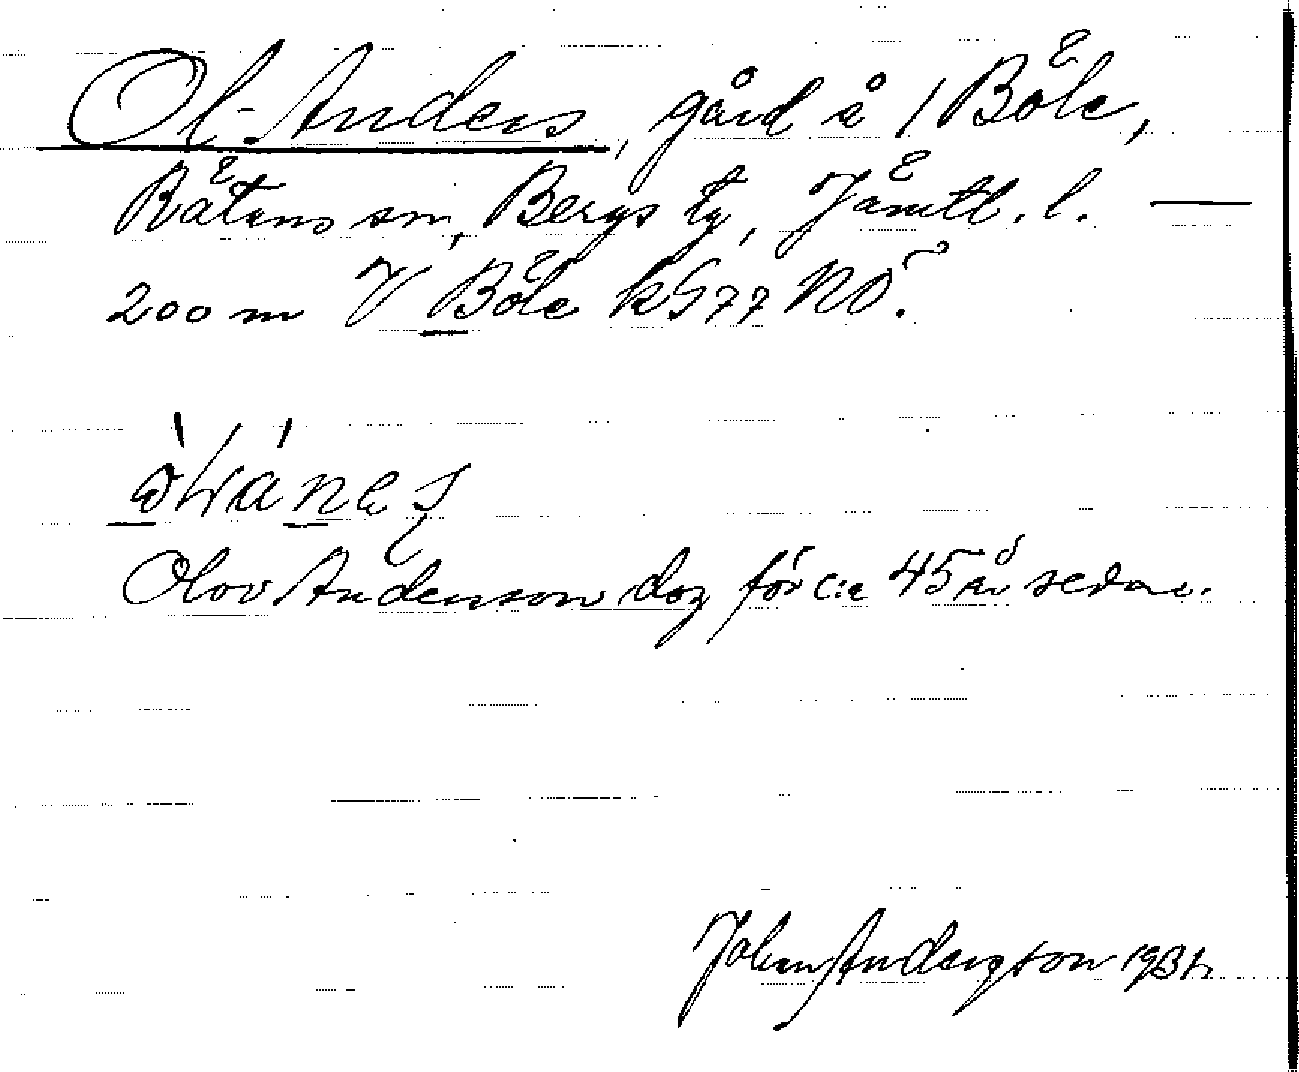 Ol-Anders, gård å 1 Böle,
Rätans sn, Bergs tg, Jämtl. l. —
200 m V Böle k977 NÖ.
Olov Anderson dog för c:a 45 år sedan.
Johan Anderzson 1934